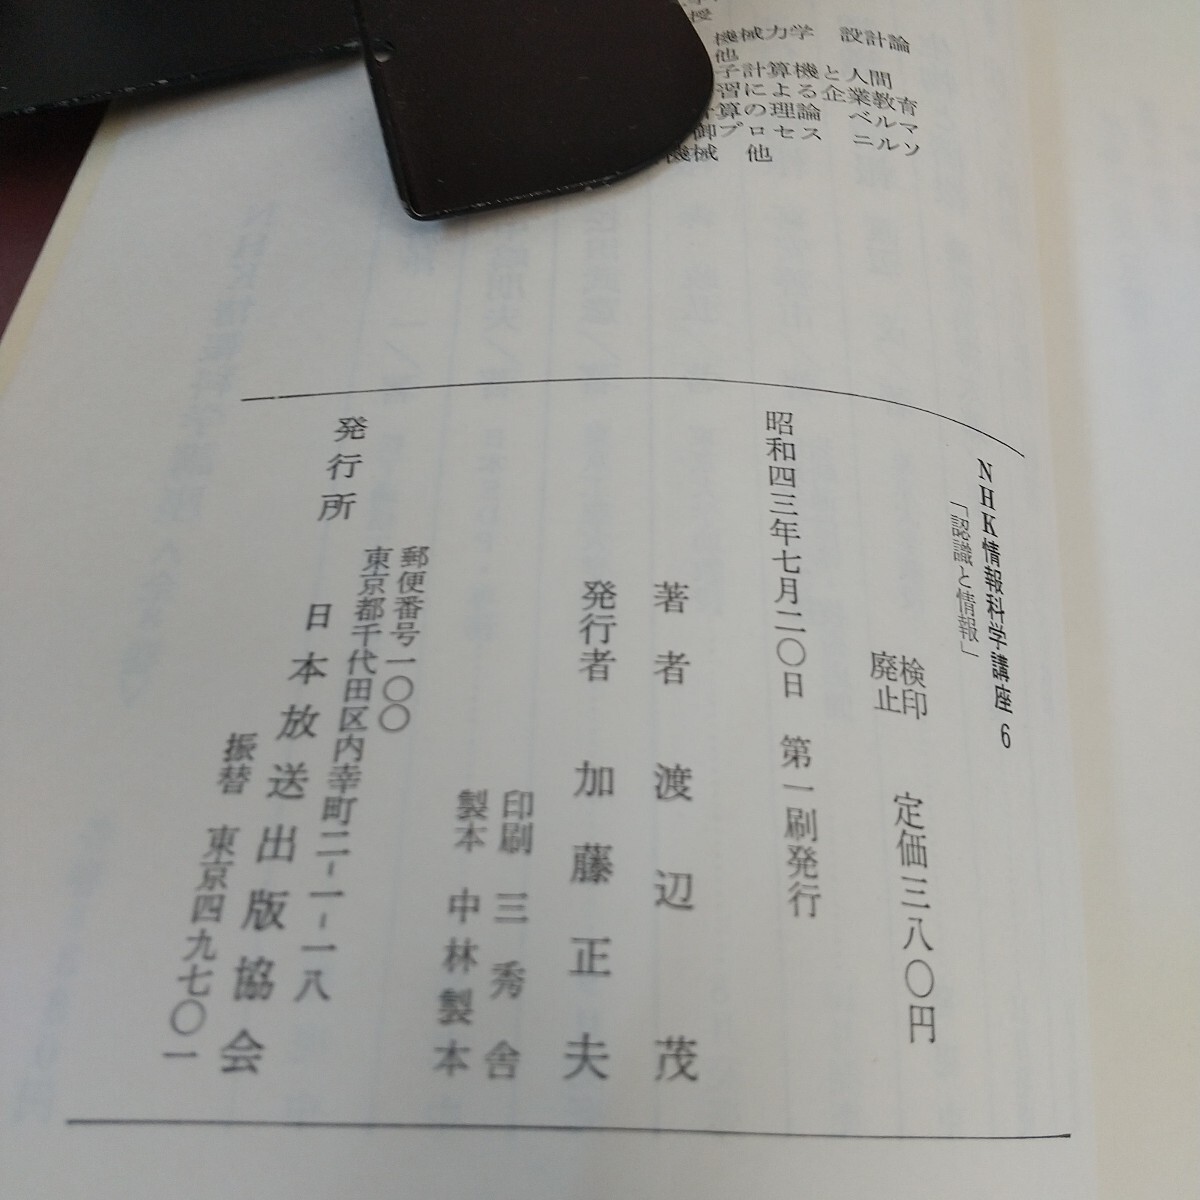 授
機械力学　設計論
他
子計算機と人間
習による企業教育
算の理論　ベルマ
御プロセス　ニルソ
機械　他
NHK情報科学講座 6
「認識と情報」
検印
廃止
定価三八〇円
昭和四三年七月二〇日　第一刷発行
著者　渡辺　茂
発行者　加藤正夫
印刷　三秀舎
製本　中林製本
郵便番号一〇〇
東京都千代田区内幸町二-一-一八
発行所　日本放送出版協会
振替　東京四九七〇一